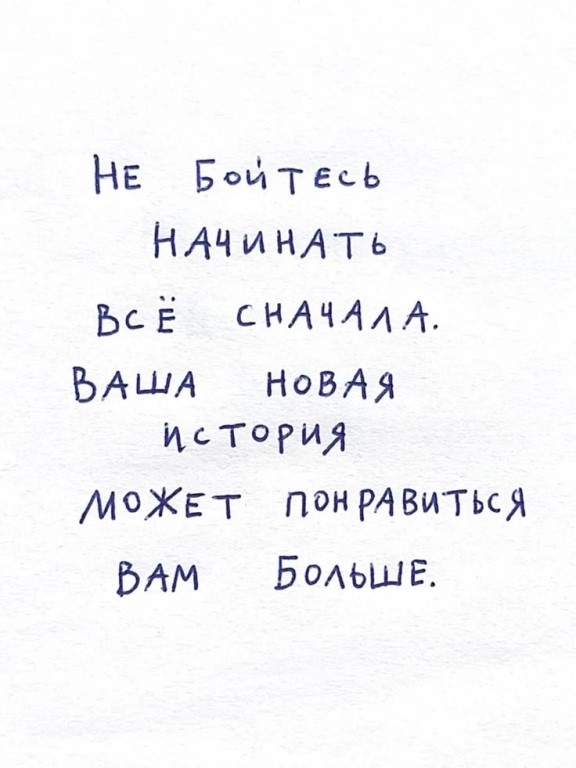 Не бойтесь
начинать
всё сначала.
Ваша новая
история
может понравиться
вам больше.